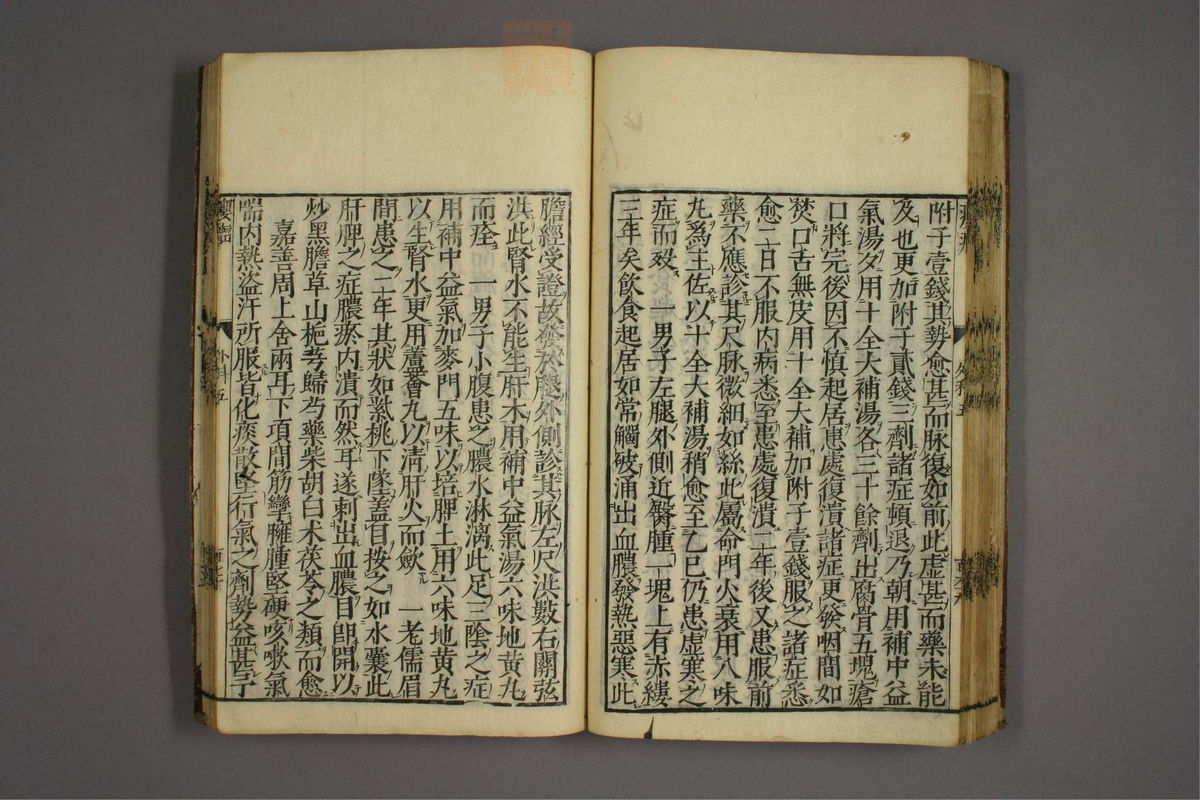 附子壹錢其勢愈甚而脉復如前此虛甚而藥未能
及也更加附子貳錢三劑諸症頓退乃朝用補中益
氣湯夕用十全大補湯各三十餘劑出腐骨五塊瘡
口將完後因不慎起居患處復潰諸症更發咽間如
焚口舌無皮用十全大補加附子壹錢服之諸症悉
愈二日不服内病悉至患處復潰二年後又患服前
藥不應診其尺脉微細如絲此屬命門火衰用八味
丸爲主佐以十全大補湯稍愈至乙巳仍患虛寒之
症而歿　一男子左腿外側近臀腫一塊上有赤縷
三年矣飲食起居如常觸破涌出血膿發熱惡寒此
膽經受證故發於腿外側診其脉左尺洪數右關弦
洪此腎水不能生肝木用補中益氣湯六味地黄丸
而痊　一男子小腹患之膿水淋漓此足三陰之症
用補中益氣加麥門五味以培脾土用六味地黄丸
以生腎水更用蘆薈丸以清肝火而歛　一老儒眉
間患之二年其狀如紫桃下墜蓋目按之如水囊此
肝脾之症膿瘀内潰而然耳遂刺出血膿目即開以
炒黑膽草山梔芎歸芍藥柴胡白术茯苓之類而愈
嘉善周上舍兩耳下項間筋攣臃腫堅硬咳嗽氣
喘内熱盜汗所服皆化痰散堅行氣之劑勢益甚予